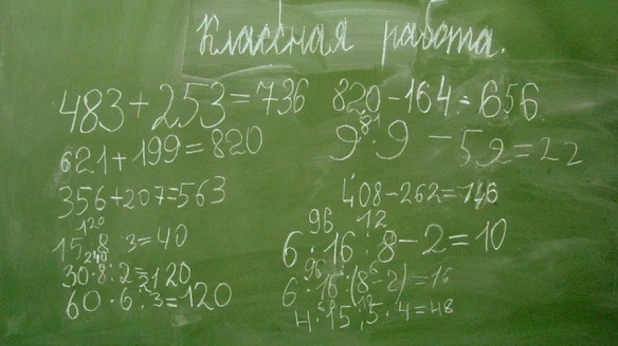 Классная работа.
483+253=736
621+199=820
356+207=563
120
15·8:3=40
240
30·8:2=120
2
60·6:3=120
820-164=656
81
9·9-59=22
408-262=146
96 12
6·16:8-2=10
96 6
6·16:(8-2)=16
12
4·15:5·4=48